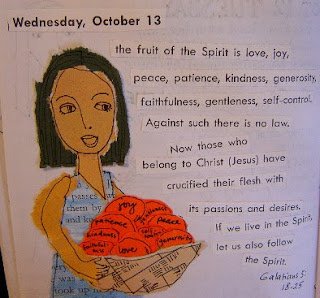 Wednesday, October 13
the fruit of the Spirit is love, joy,
peace, patience, kindness, generosity,
faithfulness, gentleness, self-control.
Against such there is no law.
Now those who
belong to Christ (Jesus) have
crucified their flesh with
its passions and desires.
If we live in the Spirit,
let us also follow
the Spirit.
Galatians 5
18-25
passes
them by
and
joy
patience
peace
kindness
generosity
love
was a
took up